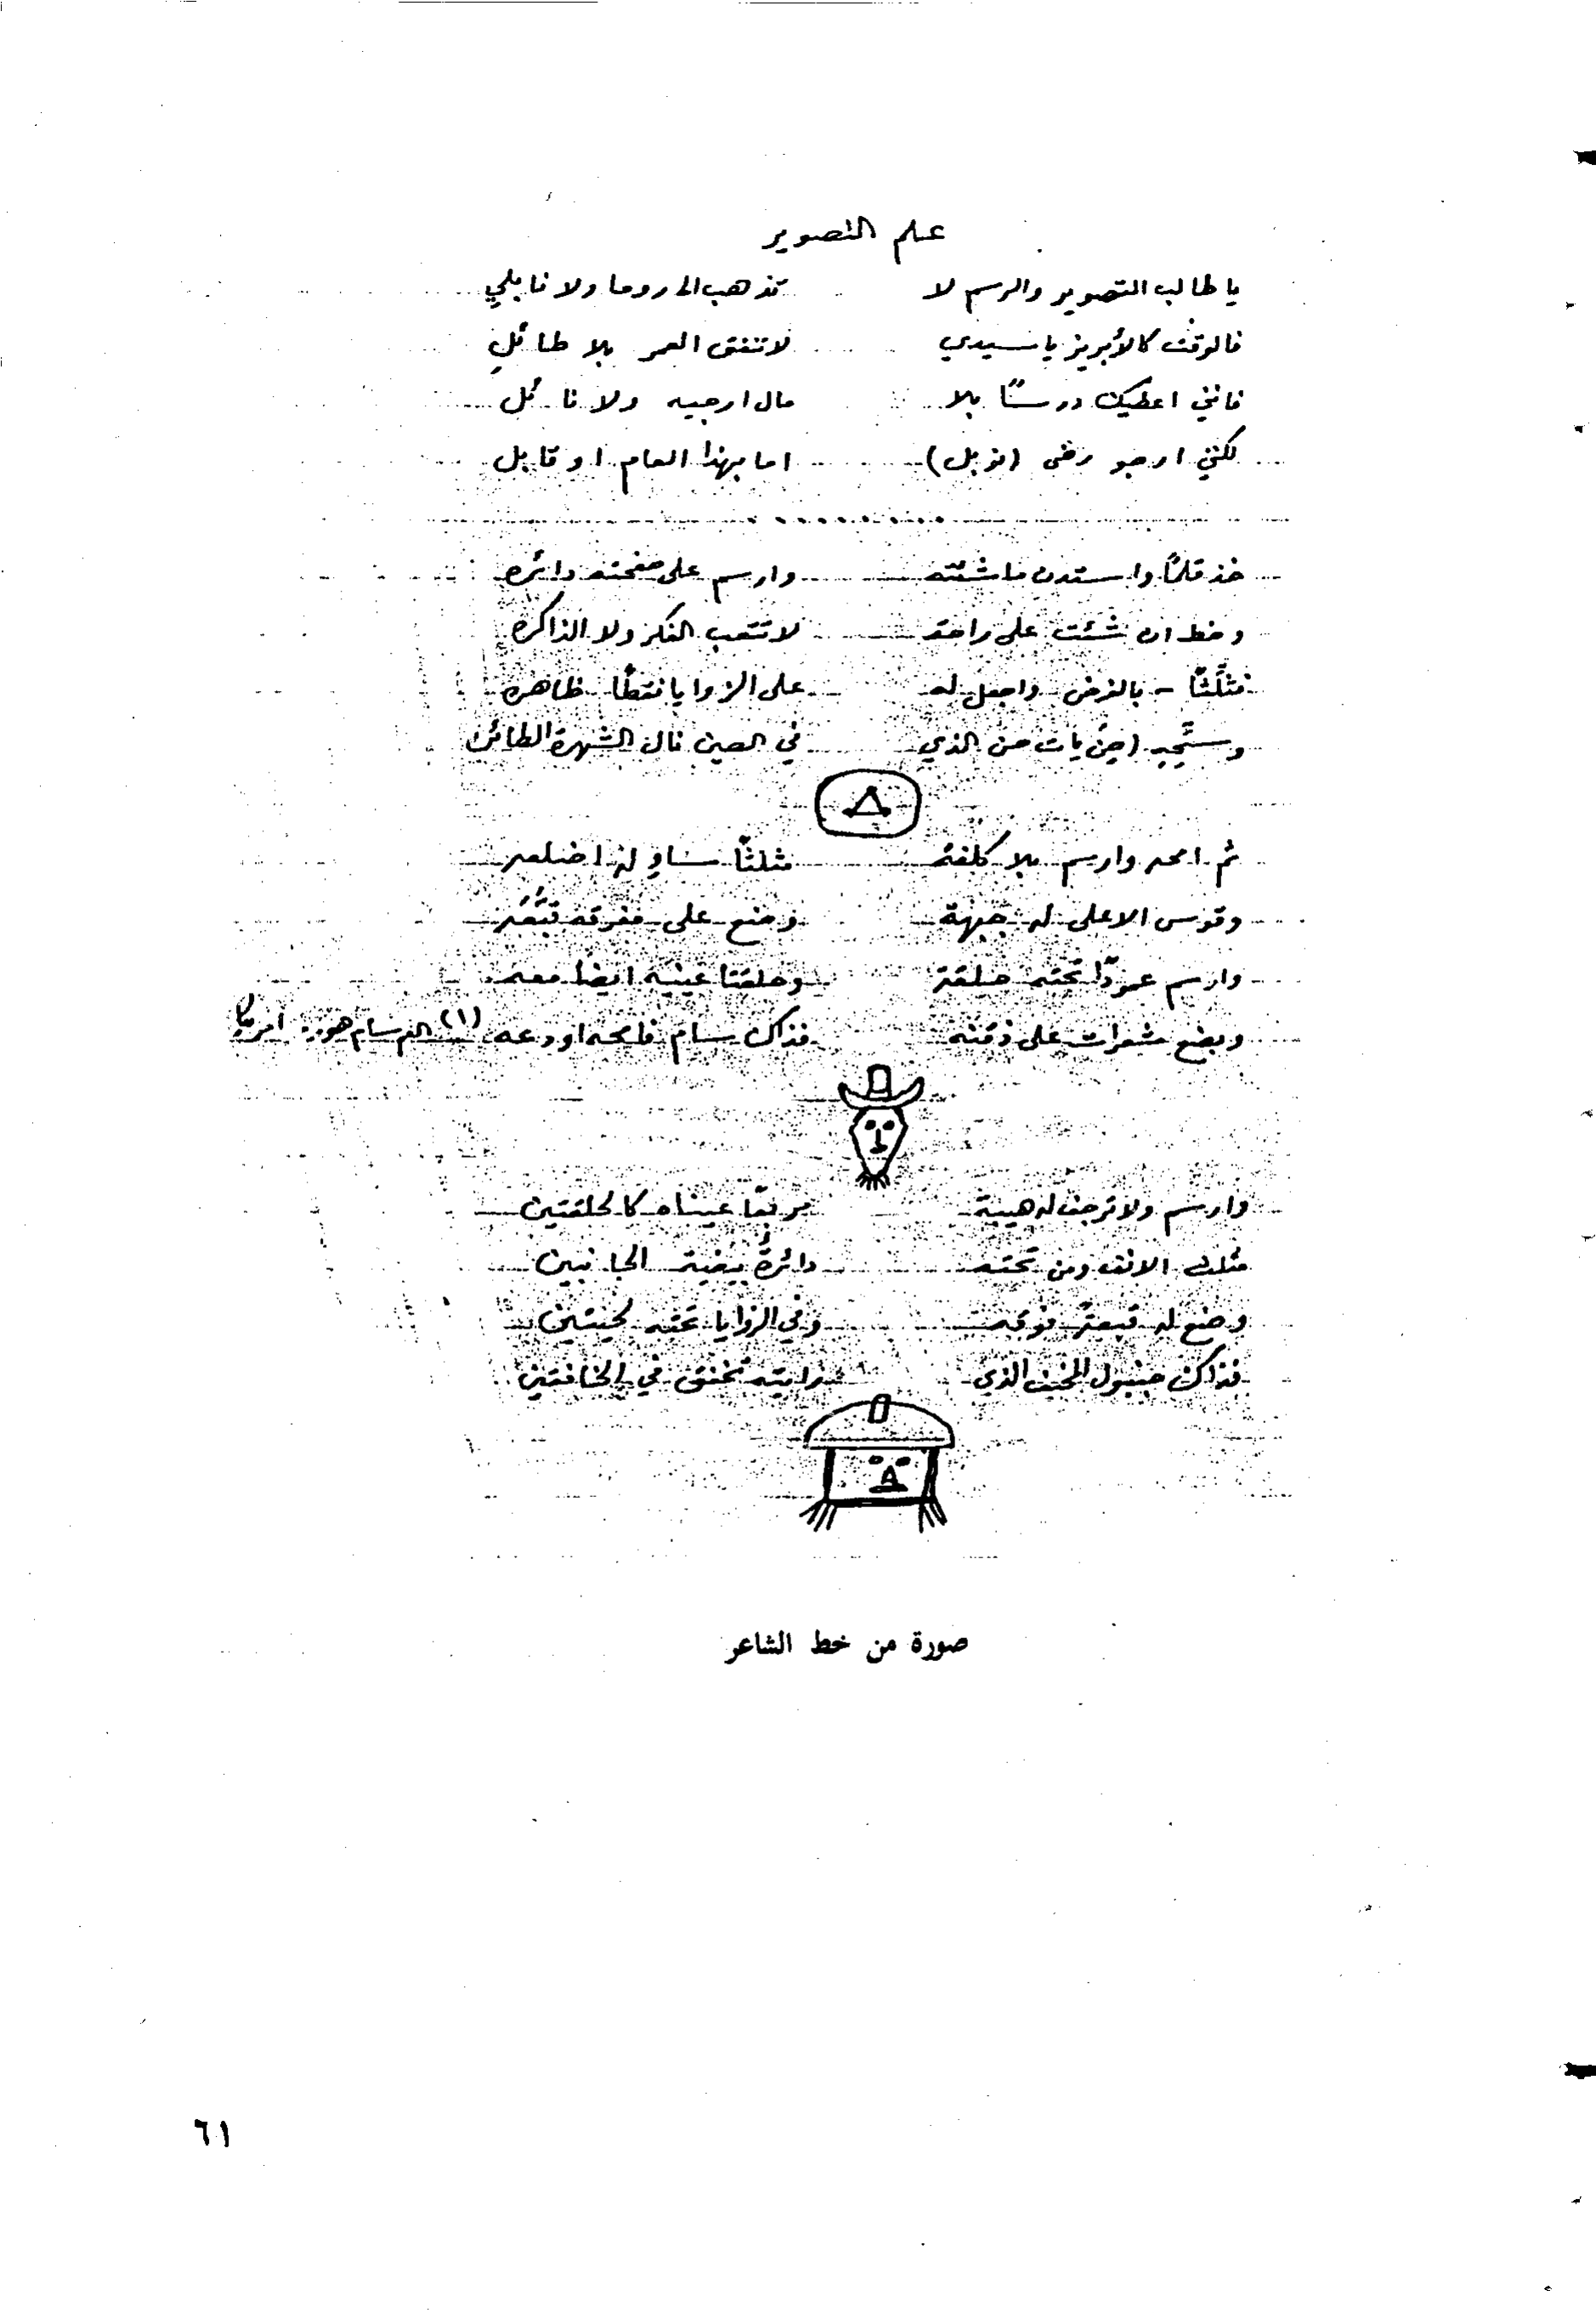 علم التصوير
يا طالب التصوير والرسم لا تذهب الى روما ولا نابلي
فالوقت كالأبريز يا سيدي لا تنفق العمر بلا طائلِ
فانني اعطيك درسًا بلا مال ارجيه ولا نائل
لكنني ارجو رضى (نوبل) اما بهذا العام او قابل
خذ قلمًا واستدن ما شئته وارسم على صفحته دائره
وخط ان شئت على راحة لا تتعب الفكر ولا الذاكره
مثلّثًا - بالفرض واجعل له على الزوايا نقطًا ظاهره
في الصين نال الشهرة الطائره
ثم امحه وارسم بلا كلفة مثلثًا ساوِ له اضلعه
وقوس الاعلى له جبهة وضع على مفرقه قبّعه
وارسم عمودًا تحته حلقة وحلقتا عينيه ايضًا معه
وبضع شعرات على ذقنه فذاك سام فامحه او دعه (١) العم سام هو امريكا
وارسم ولا ترجف له هيبة مربعًا عيناه كالحلقتين
مثلث الانف ومن تحته دائرةٌ بيضية الجانبين
وضع له قبعة فوقه وفي الزوايا تحته لحيتين
فذاك جنبول المخيف الذي رايته تخفق في الخافقين
صورة من خط الشاعر
٦١